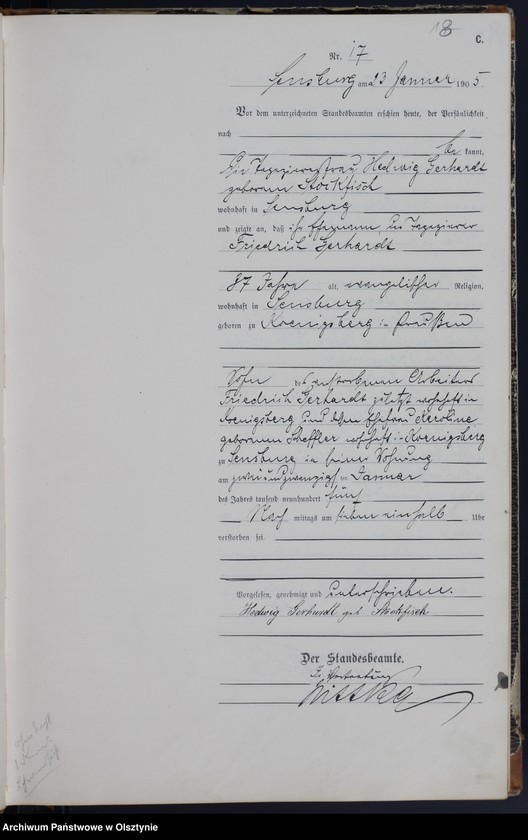 C.
Nr. 17
Sensburg am 23 Januar 1905.
Vor dem unterzeichneten Standesbeamten erschien heute, der Persönlichkeit
nach
be kannt,
die Tapeziererfrau Hedwig Gerhardt
geborene Stockfisch
wohnhaft in Sensburg
und zeigte an, daß ihr Ehemann, der Tapezierer
Friedrich Gerhardt
37 Jahre alt, evangelischer Religion,
wohnhaft in Sensburg
geboren zu Koenigsberg in Preußen
Sohn des verstorbenen Arbeiters
Friedrich Gerhardt zuletzt wohnhaft in
Koenigsberg und dessen Ehefrau Karoline
geborenen Scheffler wohnhaft in Koenigsberg
zu Sensburg in seiner Wohnung
am zwei und zwanzigsten Januar
des Jahres tausend neunhundert fünf
Nach mittags um sieben einhalb Uhr
verstorben sei.
Vorgelesen, genehmigt und unterschrieben.
Hedwig Gerhardt geb Stockfisch
Der Standesbeamte.
In Vertretung
Archiwum Państwowe w Olsztynie